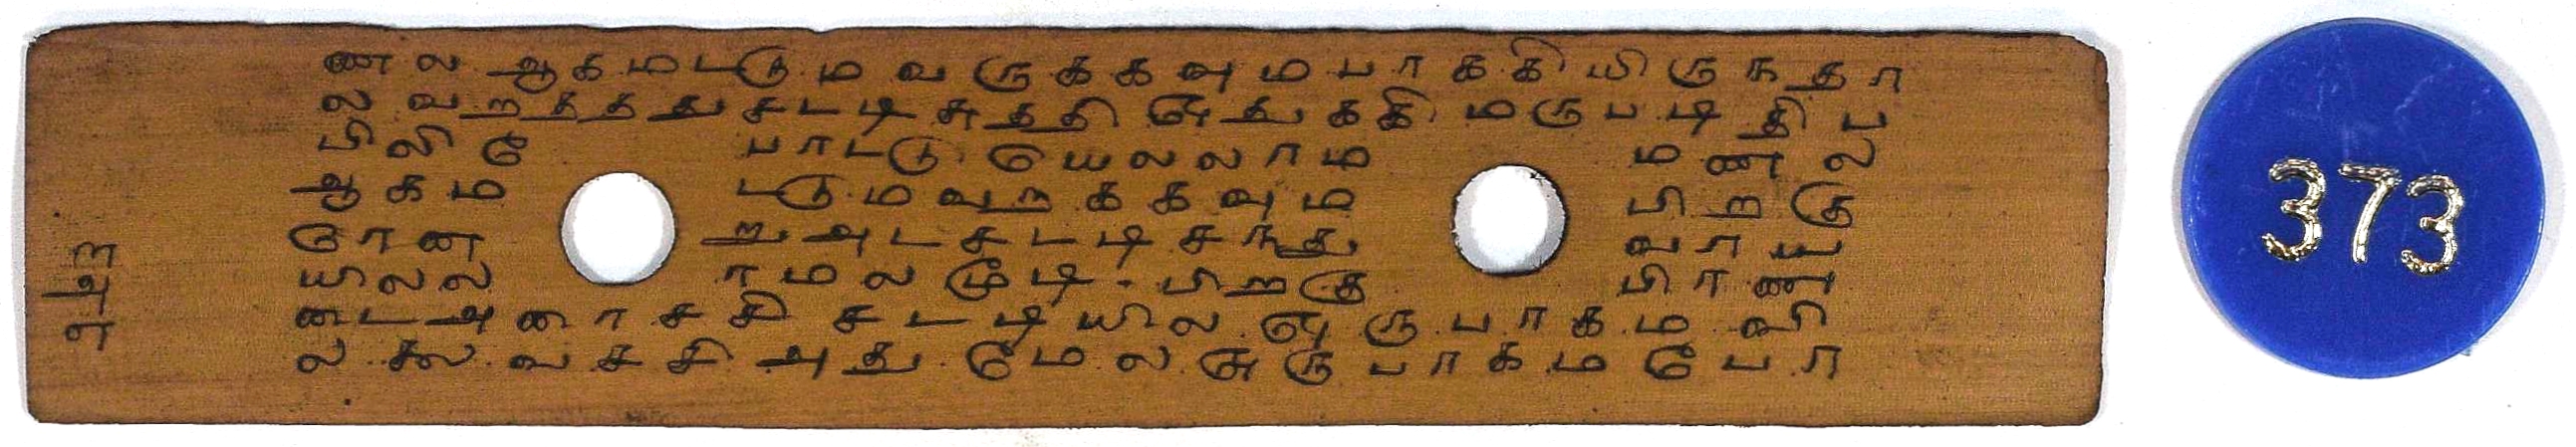 ணல ஆகமடடுமவருககவுமபாககியிருநதா
லவறதததுசடடிசுததிஒதுககிமருபடிதிப
பிலிபோடடுயெலலாமமணல
ஆகமடடுமவறுககவுமபிறகு
சோளறுஅடசடடிசநதுவாய
யிலலாமலமூடி. பிறகுபிரண
டைஅரைசசிசடடியிலஒருபாகமவி
லகலவசசிஅதுமேலஒருபாகமபோ
373